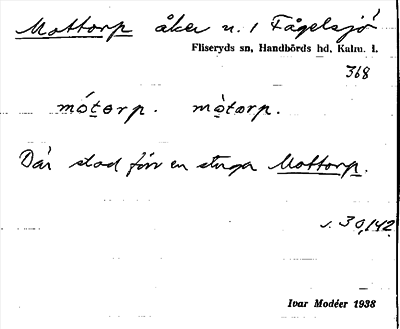 Mottorp åker n. 1 Fågelsjö
Fliseryds sn, Handbörds hd, Kalm. l.
368
mótorp. mòtorp.
Där stod förr en stuga Mottorp.
s. 30,142.
Ivar Modéer 1938